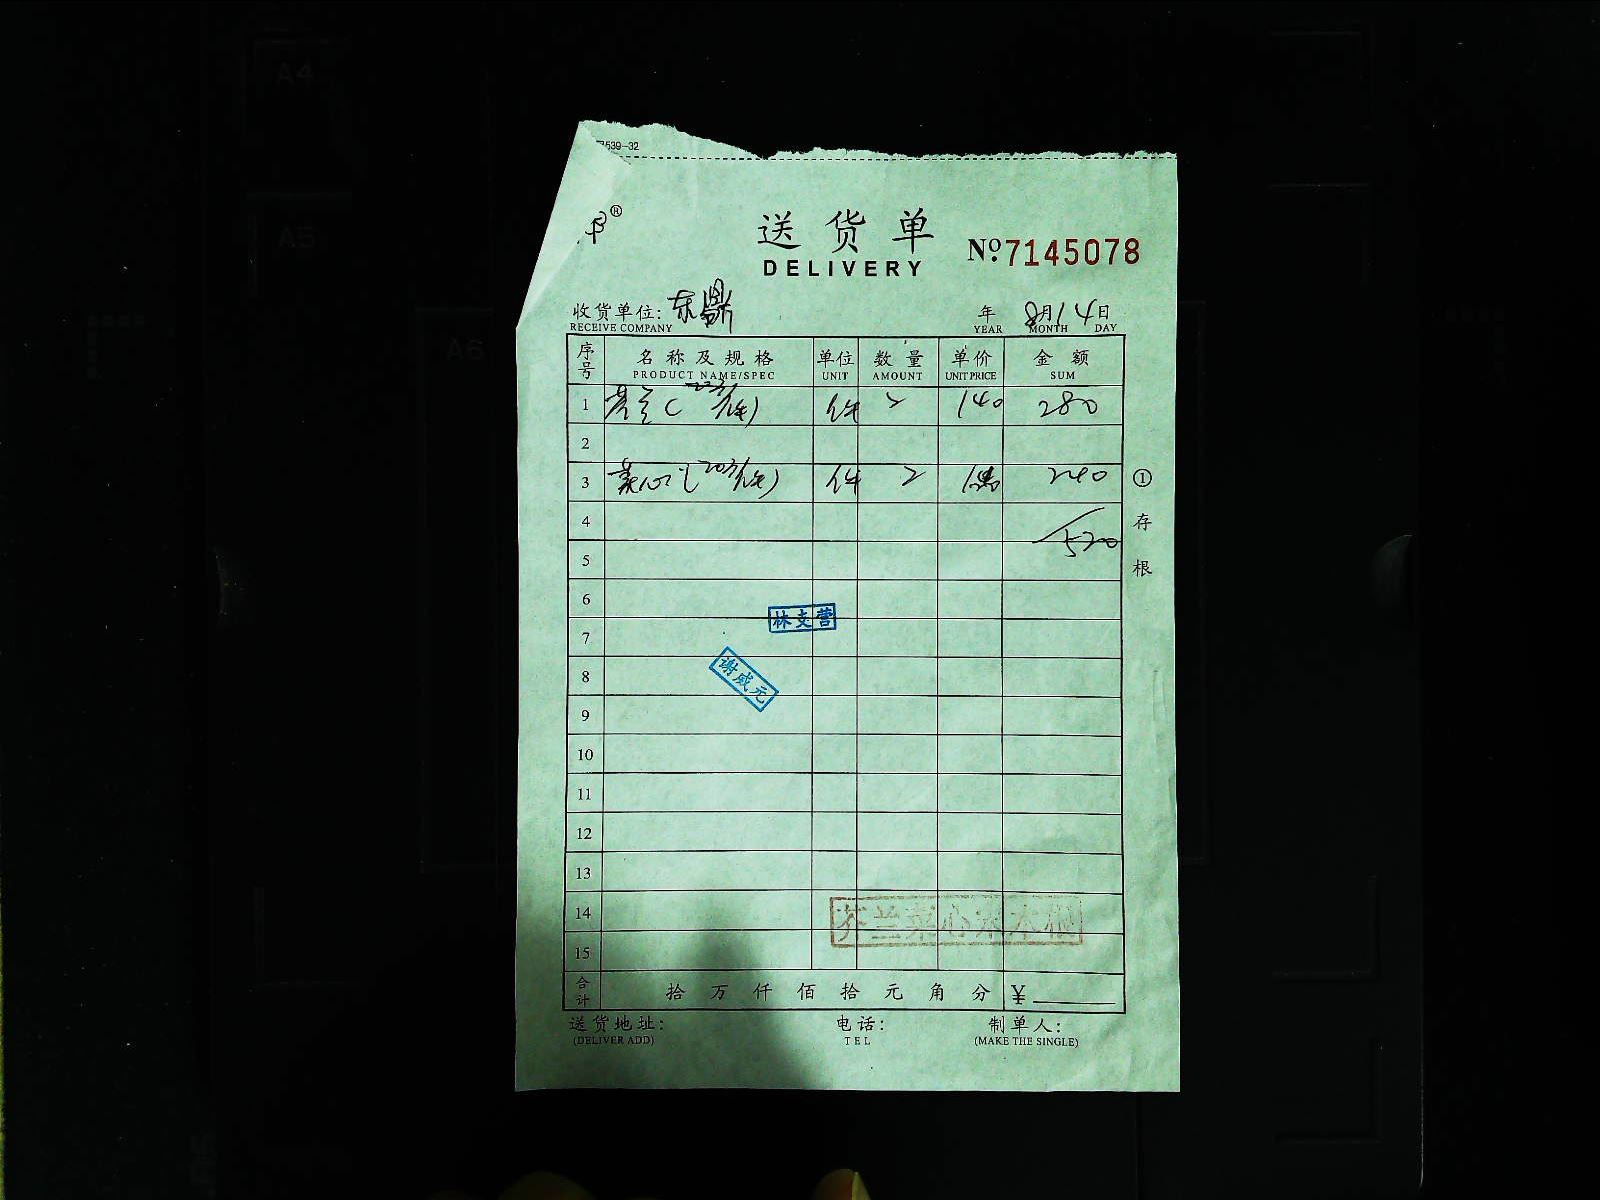 7539-32
®
送货单
DELIVERY
No:7145078
收货单位: 东鼎
RECEIVE COMPANY
年 8月14日
YEAR MONTH DAY
序号 名称及规格 单位 数量 单价 金额
PRODUCT NAME/SPEC UNIT AMOUNT UNIT PRICE SUM
1 芥兰( 件) 件 2 140 280
2
3 菜心(20斤/件) 件 2 240
4
520
5
6
林支营
7
8
谢威元
9
10
11
12
13
14
芥兰菜心
15
合计 拾万仟佰拾元角分 ¥
送货地址: 电话: 制单人:
(DELIVER ADD) TEL (MAKE THE SINGLE)
①存根
A4
A5
A6